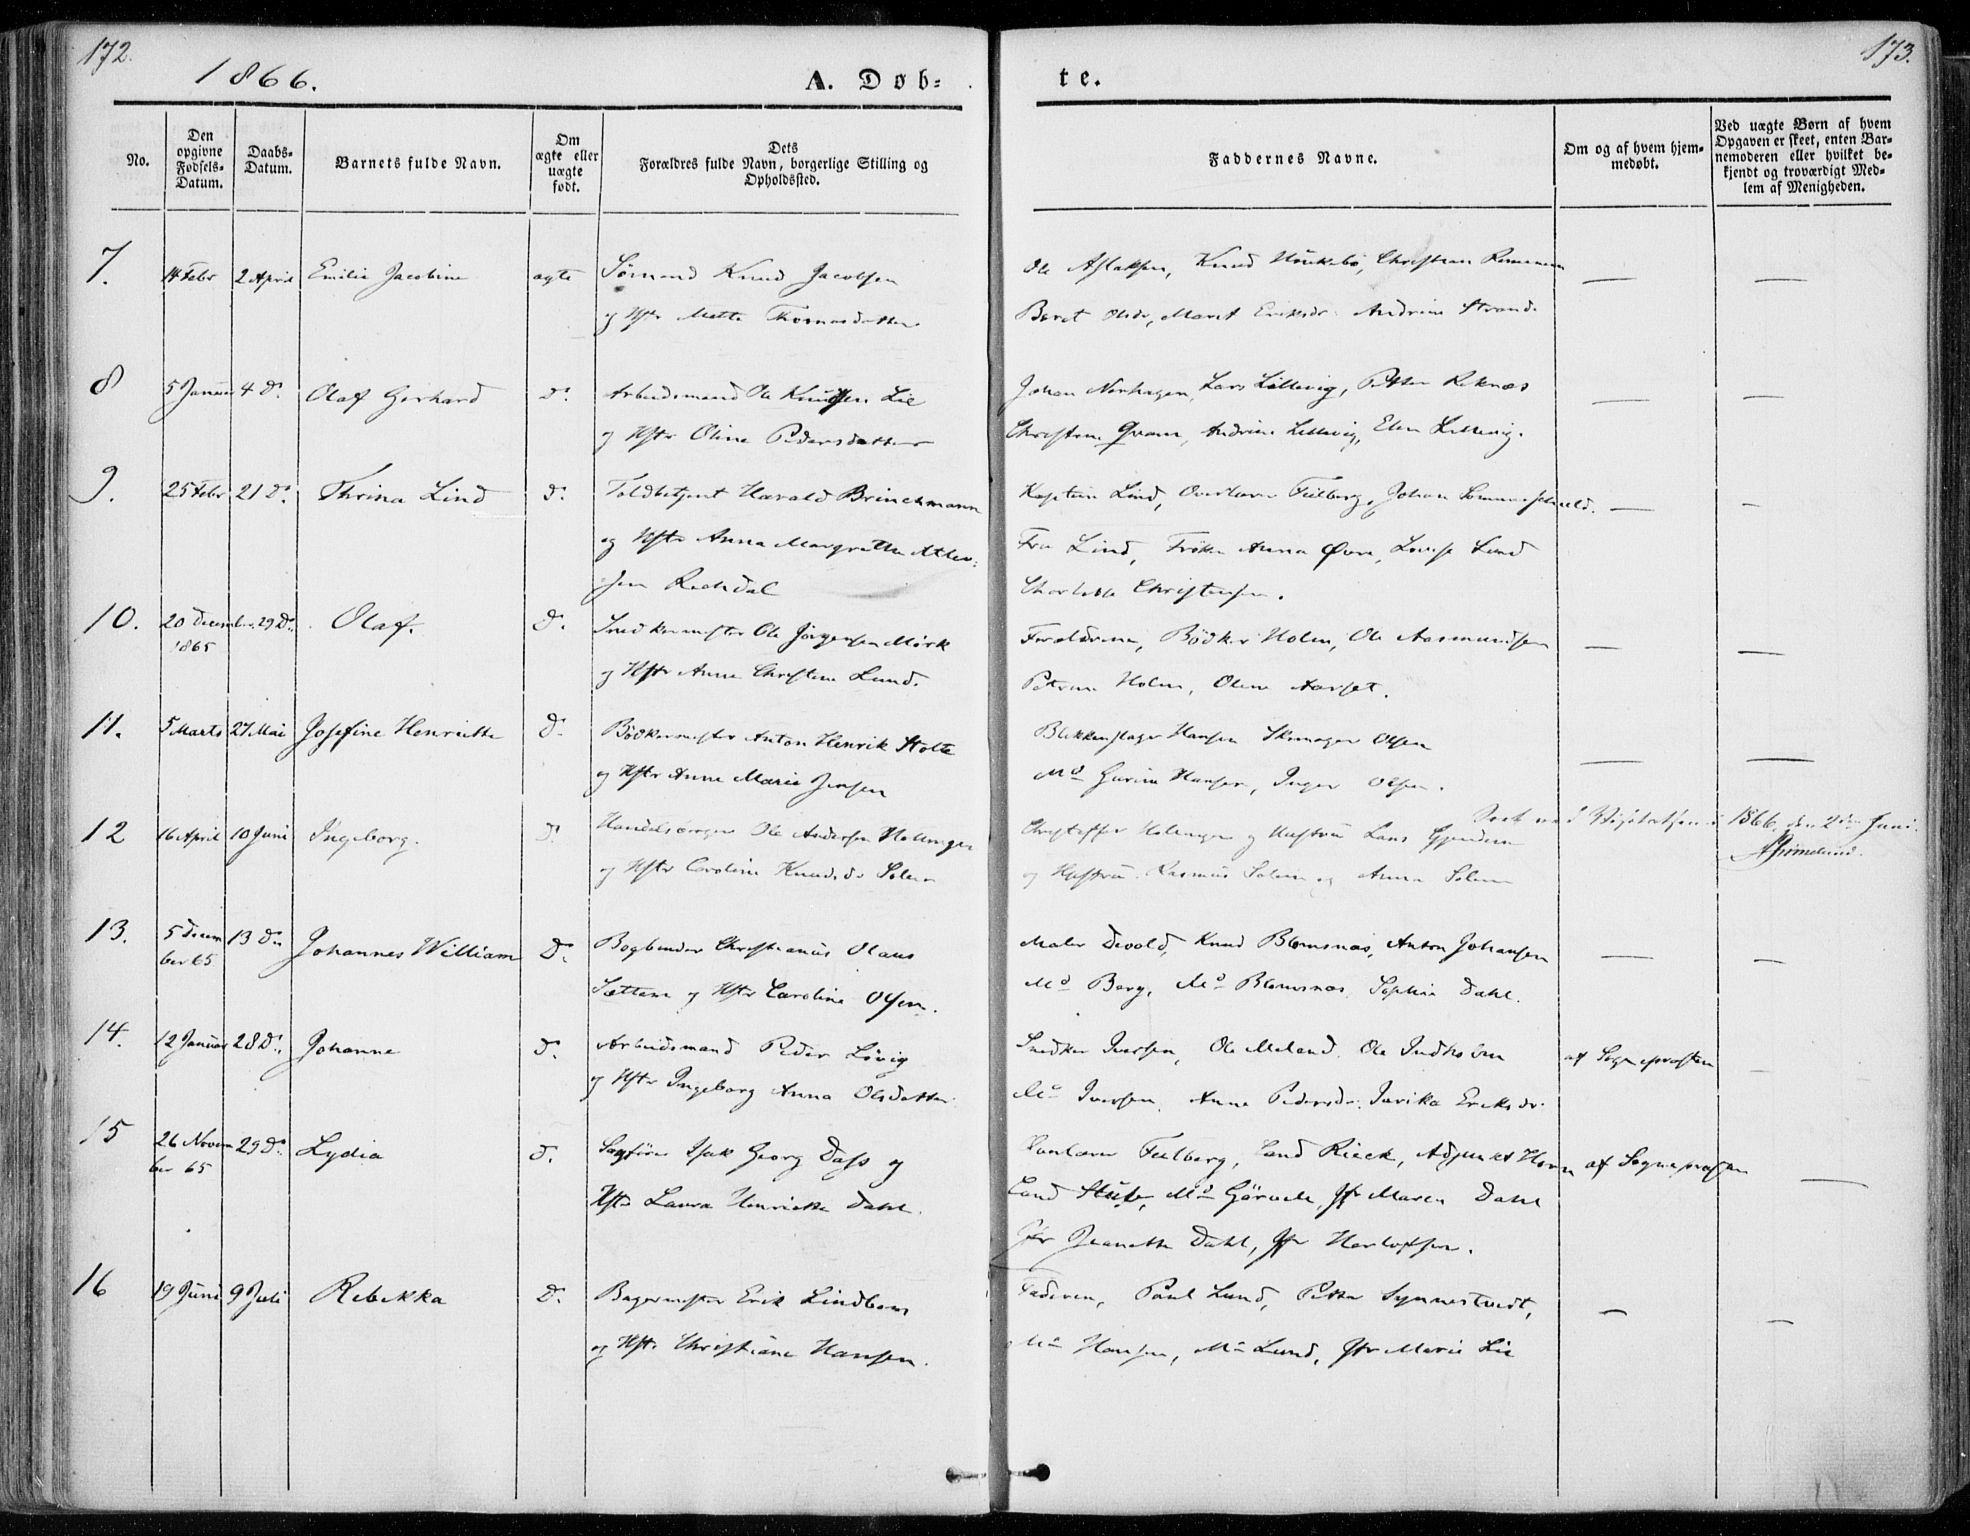 172.
1866.
A. Døb=
te.
173.
No.
Den opgivne Fødsels-Datum.
Daabs-Datum.
Barnets fulde Navn.
Om ægte eller uægte født.
Dets Forældres fulde Navn, borgerlige Stilling og Opholdssted.
Faddernes Navne.
Om og af hvem hjemmedøbt.
Ved uægte Børn af hvem Opgaven er skeet, enten Barnemoderen eller hvilket bekjendt og troværdigt Medlem af Menigheden.
7. 14 Febr 2 April Emilie Jacobine ægte Sømand Knud Jacobsen
og Hstr Mette Thomasdatter
Ole Aslaksen, Knud Christian
Beret Olsdr, Marit Eriksdr. Andrine Strand.
8 5 Januar 4 D. Olaf Gerhard D. Arbeidsmand Ole Knudsen Lie
og Hstr Oline Pedersdatter
Johan Lars Lillevig, Petter Reknæs
Christine Qvam, Andrine Lillevig, Elen Lillevig.
9. 25 Febr 21 D. Thrina Lind D. Toldbetjent Harald Brinchmann
og Hstr Anna Margrethe
sen
Kaptein Lind, Overlærer Feilberg, Johan Sommerscheeld.
Fru Lind, Frøken Anna Øvre, Lovise Lund
Charlotte Christensen.
10. 20 December 29 D. Olaf. D. Snedkermester Ole Jørgensen Mörk
1865
og Hstr Anne Christine Lund.
Forældrene, Bödker Holm, Ole Aasmundsen
Petrine Holm, Oline Aarset.
11. 5 Marts 27 Mai Josefine Henriette D. Bödkermester Anton Henrik Stolte
og Hstr Anne Marie Jensen
Blikkenslager Hansen Skomager Olsen
Md Gurine Hansen, Inger Olsen.
12 16 April 10 Juni Ingeborg. D. Handelsborger Ole Andersen
og Hstr Caroline Knudsdr Solem
Christoffer og Hustru Lars Gjendem
og Hustru. Rasmus Solem og Anna Solem
1866, den 2den Juni.
13. 5 Decem 13 D. Johannes William D. Bogbinder Christianus Olaus
ber 65
Sættem og Hstr Caroline Olsen.
Maler Devold, Knud Blomsnæs, Anton Johansen
Md Berg, Md Blomsnæs, Sophie Dahl.
14. 12 Januar 28 D. Johanne D. Arbeidsmand Peder Lövig
og Hstr Ingeborg Anna Olsdatter.
Snedker Iversen, Ole Meland, Ole Indholm af Sognepræsten
Md Iversen, Anne Pedersdr. Eriksdr.
15 26 Novem 29 D. Lydia D. Sagförer Isak Georg Dass og
ber 65
Hstr Laura Henriette Dahl.
Overlærer Feilberg, Cand Rieck, Adjunkt Horn af Sognepræsten
Cand Md Jfr Maren Dahl
Jfr Jeanette Dahl, Jfr Herlofsen.
16 19 Juni 9 Juli Rebekka D. Bagermester Erik Lindbom
og Hstr Christiane Hansen.
Faderen, Paul Lund, Petter Synnestvedt,
Md Hansen, Md Lund, Jfr Marie Lie